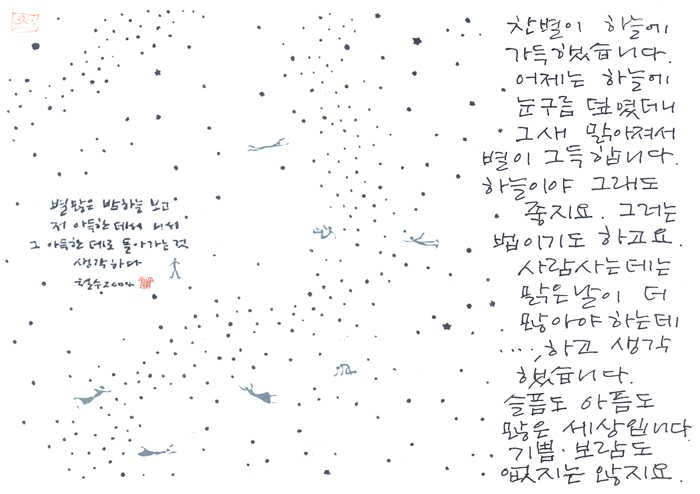 별 많은 밤하늘 보고
저 아득한 데서 나서
그 아득한 데로 돌아가는 것
생각하다
철수 2004
찬별이 하늘에
가득했습니다.
어제는 하늘에
눈구름 덮였더니
그새 맑아져서
별이 그득합니다.
하늘이야 그래도
좋지요. 그러는
법이기도 하고요.
사람사는데는
맑은날이 더
많아야하는데
····, 하고 생각
했습니다.
슬픔도 아픔도
많은 세상입니다
기쁨·보람도
없지는 않지요.